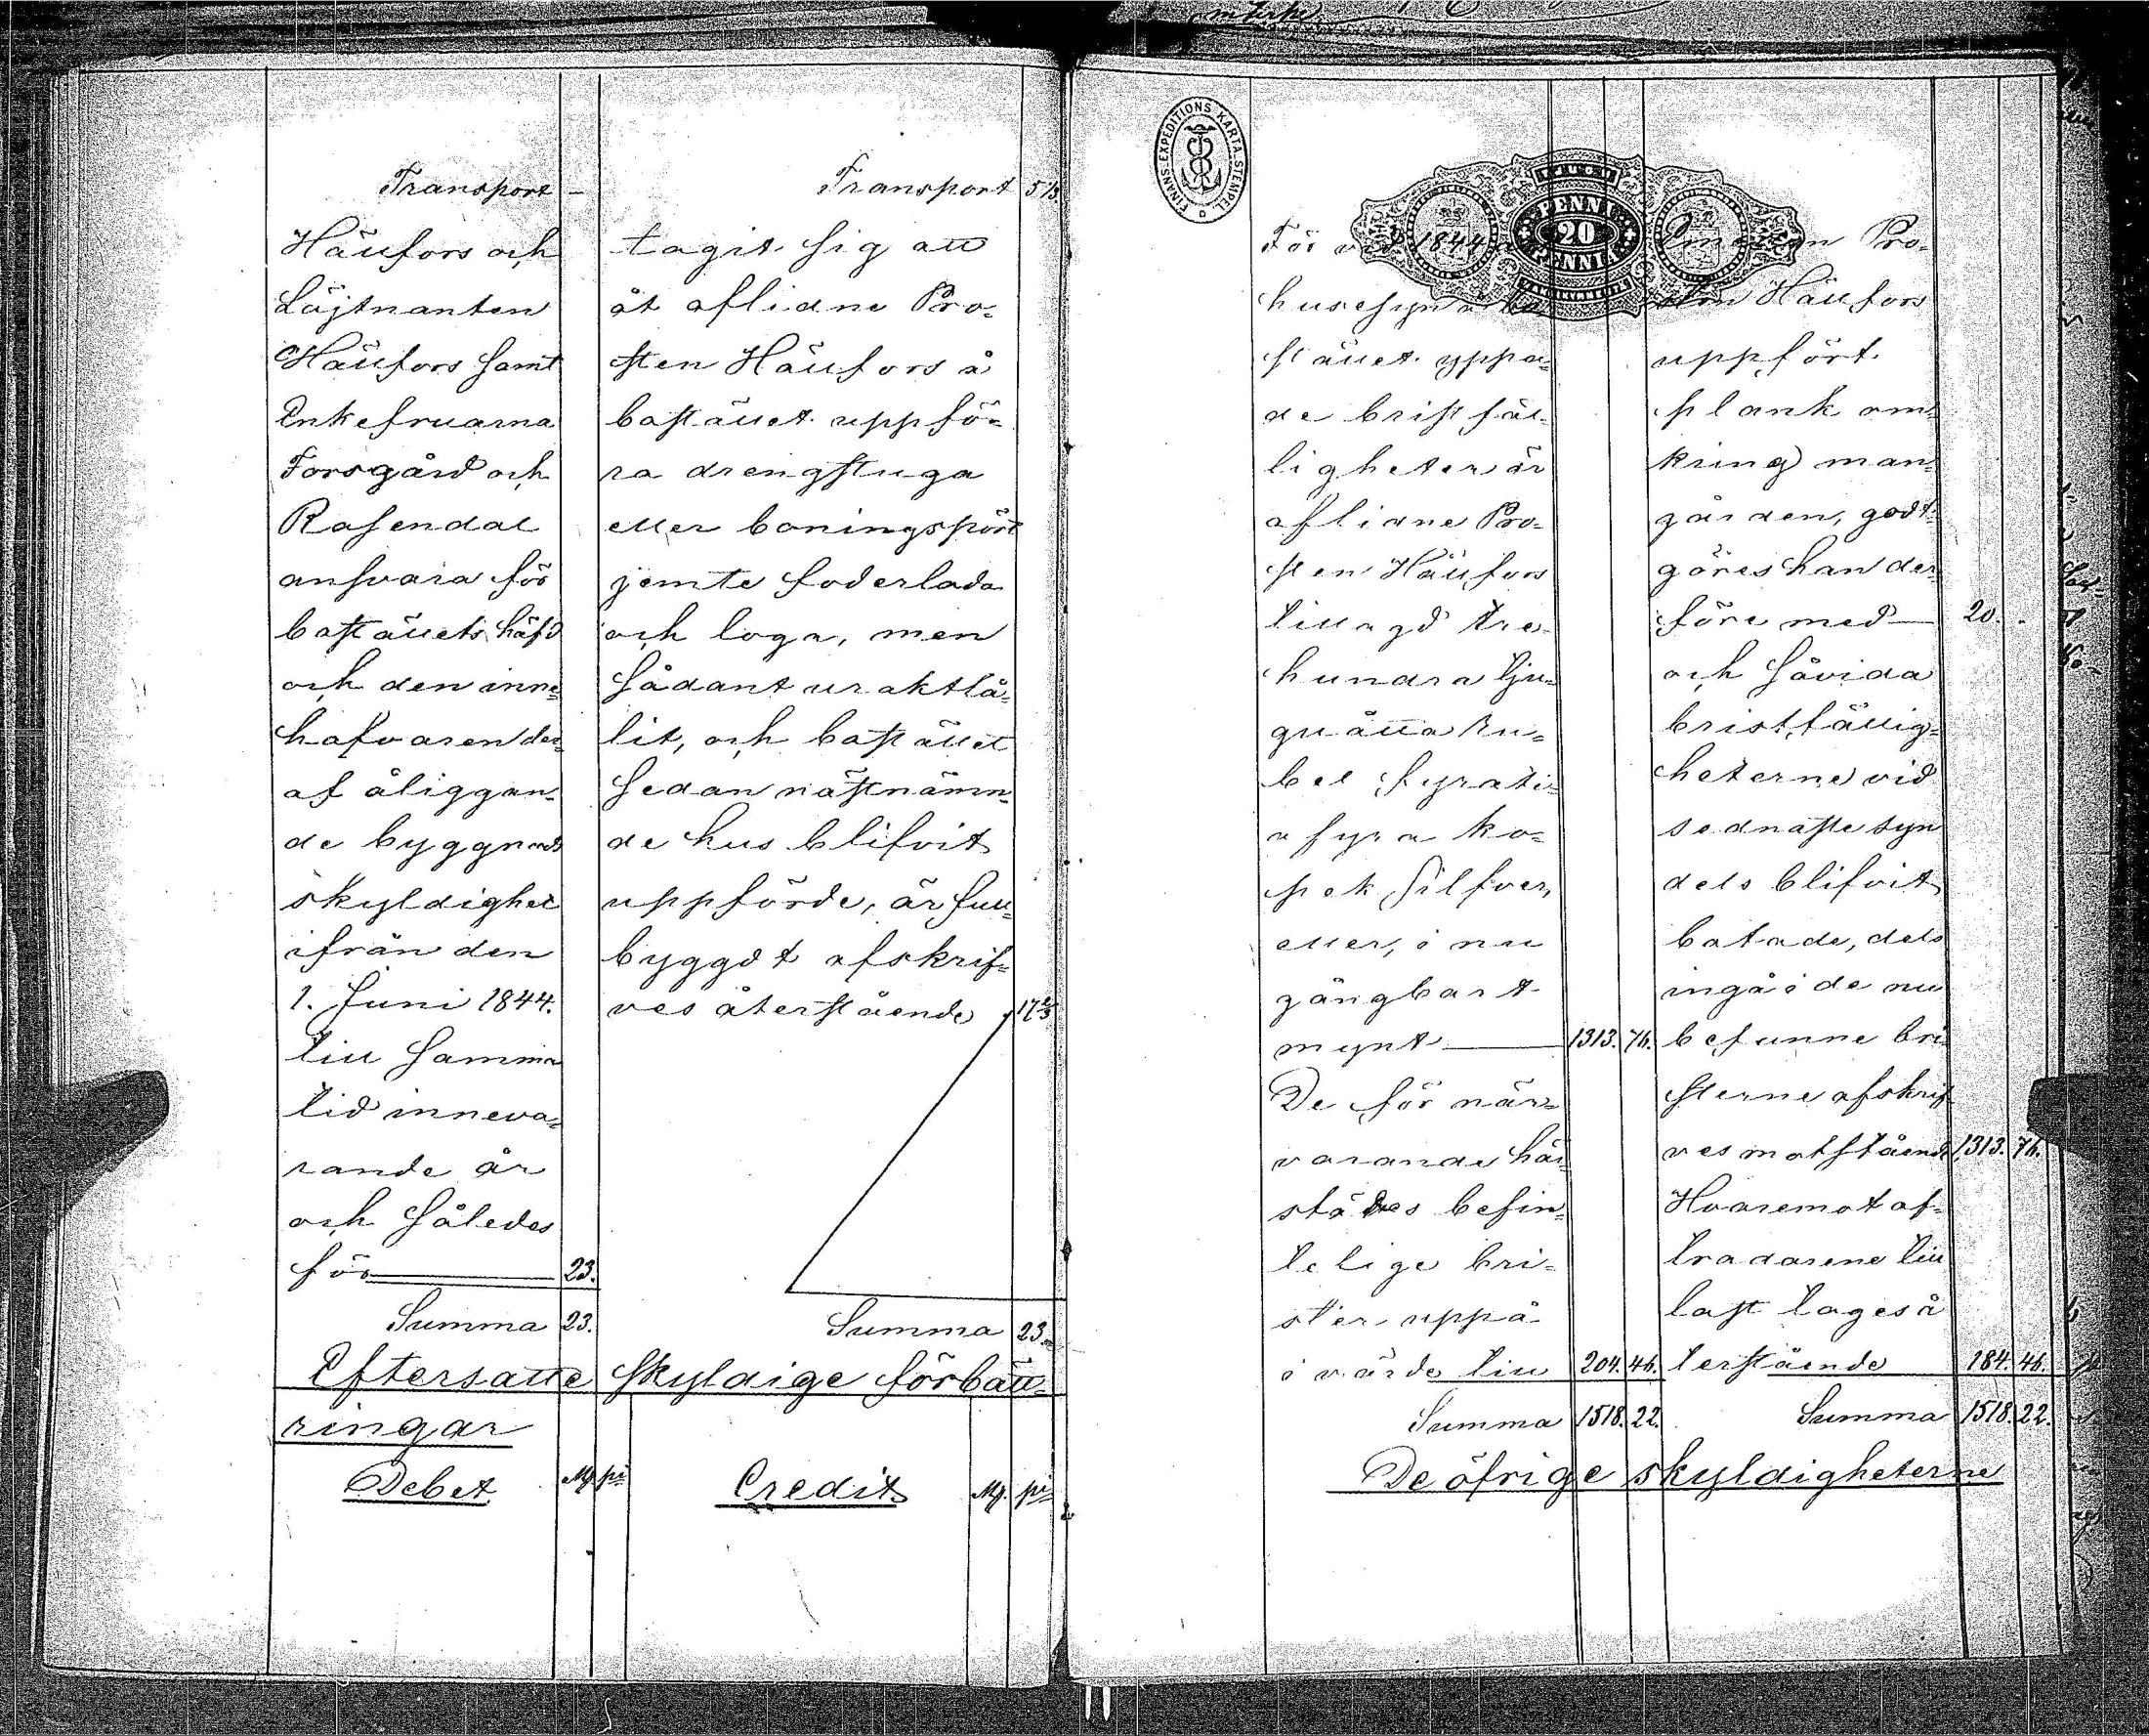 Transport -
Hällfors och
Löjtnanten
Hällfors samt
Enkefruarna
Forsgård och
Rosendal
ansvara för
boställets häfd
och den inne=
hafvaren der=
af åliggan=
de byggnads
skyldighet
ifrån den
1. Juni 1844.
till samma
tid inneva=
rande år
och således
för 23.
Summa 23.
Transport 5 1/3
tagit sig att
åt aflidne Pro=
sten Hällfors å
bostället uppfö=
ra drengstuga
eller boningspört
jemte foderlada
och loga, men
sådant uraktlå=
tit, och bostället
sedan nästnämn=
de hus blifvit
uppförde, är full=
byggdt afskrif=
ves återstående 17 2/3
Summa 23.
Eftersatte skyldige förbätt=
ringar
Debet Mk pi
Credit Mk pi
FINANS-EXPEDITIONS KARTA.STEMPEL
PENNI
20
PENNIÄ
För vid 1844
husesyn å bo=
stället yppa=
de bristfäl=
ligheter är
aflidne Pro=
sten Hällfors
tillagd tre=
hundra tju=
guåtta ru=
bel fyrati=
afyra ko=
pek silfver,
eller, i nu
gångbart
mynt 1313. 76.
De för när=
varande här=
städes befin=
telige bri=
ster uppå
i värde till 204. 46.
Summa 1518. 22.
Pro=
Hällfors
uppfört
plank om=
kring man=
gården, godt=
göres han der=
före med 20. .
och såvida
bristfällig=
heterne vid
sednaste syn
dels blifvit
botade, dels
ingå i de nu
befunne bri=
sterne afskrif=
ves motstående 1313. 76.
Hvaremot af=
trädarene till
last tages å=
terstående 184. 46.
Summa 1518. 22.
De öfrige skyldigheterne